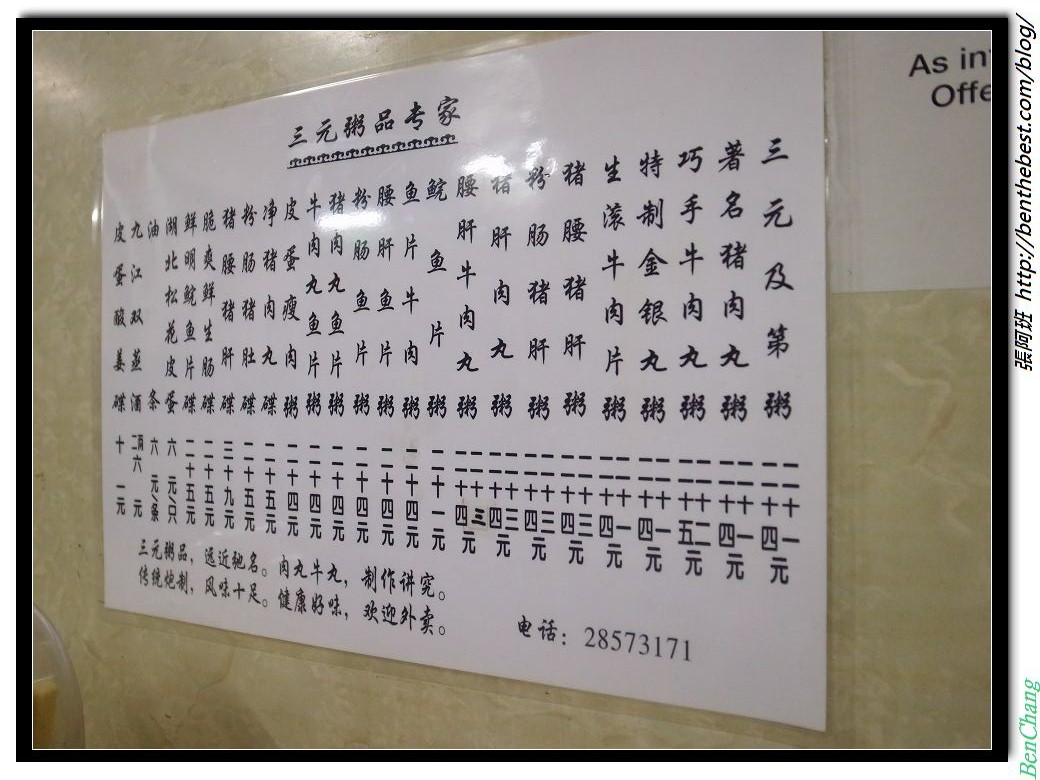 三元粥品专家
三元及第粥 二十一 二十四元
著名猪肉丸粥 二十一 二十四元
巧手牛肉丸粥 二十二 二十五元
特制金银丸粥 二十一 二十四元
生滚牛肉片粥 二十一 二十四元
猪腰猪肝粥 二十三 二十四元
粉肠猪肝粥 二十三 二十四元
猪肝肉丸粥 二十三 二十四元
腰肝牛肉丸粥 二十三 二十四元
鲩鱼片粥 二十一元
鱼片牛肉粥 二十四元
腰肝鱼片粥 二十四元
粉肠鱼片粥 二十四元
猪肉丸鱼片粥 二十四元
牛肉丸鱼片粥 二十四元
皮蛋瘦肉粥 二十四元
净猪肉丸碟 二十五元
粉肠猪肚碟 二十五元
猪腰猪肝碟 三十九元
脆爽鲜生肠碟 二十五元
鲜明鲩鱼片碟 二十五元
湖北松花皮蛋 六元/只
油条 六元/条
九江双蒸酒 六元
皮蛋酸姜碟 十一元
三元粥品，远近驰名。肉丸牛丸，制作讲究。
传统炮制，风味十足。健康好味，欢迎外卖。
电话：28573171
As in
Offe
張阿班 http://benthebest.com/blog/
BenChang